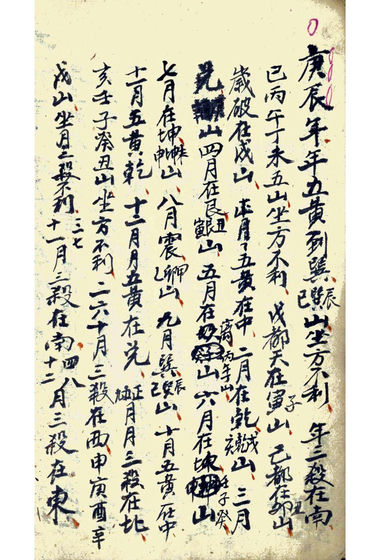 庚辰年年五黄到巽辰巽巳山坐方不利 年三殺在南
巳丙午丁未五山坐方不利 戊都天在寅子山 己都在卯丑山
歲破在戌山 本月五黄在中 二月在乾戌山 三月
兑山 四月在艮丑山 五月在离丙午山 六月在坎壬子癸山
七月在坤山 八月震卯山 九月巽辰巳山 十月五黄在中
十一月五黄乾 十二月月五黄在兑 正月月三殺在北
亥壬子癸丑山坐方不利 二六十月三殺在西申庚酉辛
戌山坐月三殺不利 三七十一月三殺在南 四八十二月三殺在東